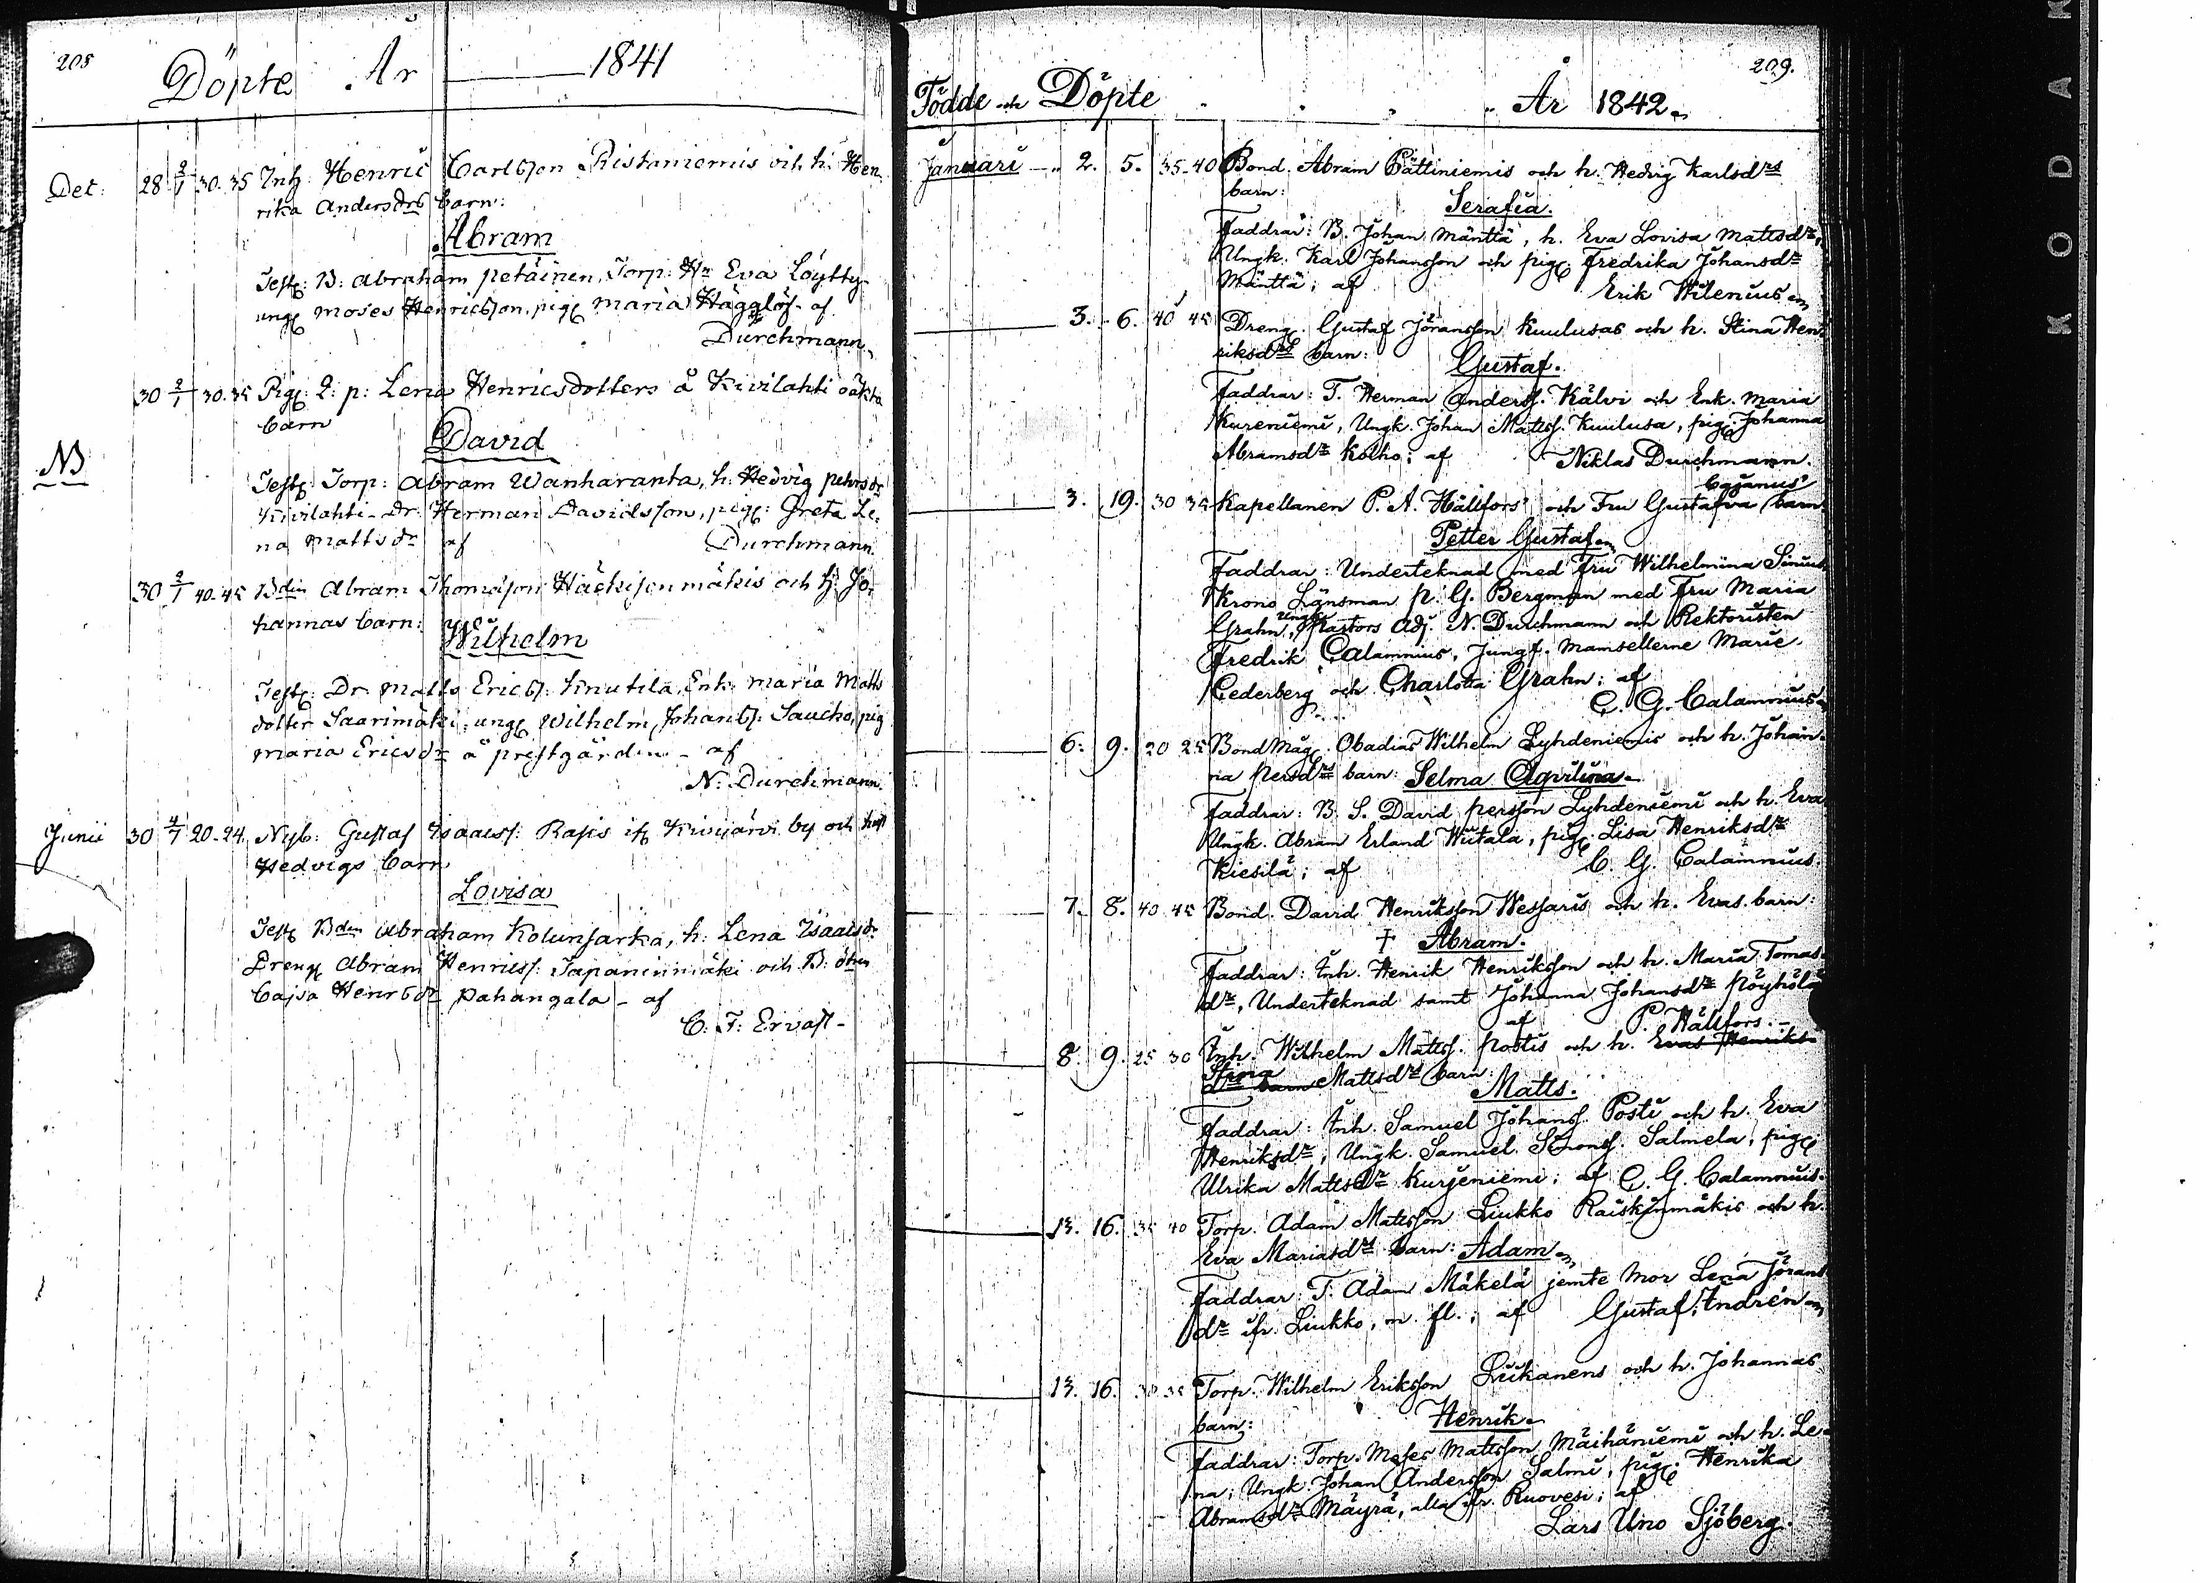 208
Döpte År 1841
Det: 28 2/1 30.35 Inh: Henric Carlsson Ristaniemis och h: Hen-
rika Andersdrs barn:
Abram
Test: B: Abraham Petäinen, Torp: Hn Eva Löytty
ung moses Henricsson, pig maria Hägglöf af
Durchmann
30 2/1 30.35 Pig: q: p: Lena Henricsdotters å Kivilahti oäkta
barn
David
NB
Test: Torp: Abram Wanharanta, h: Hedvig pehrsdr
Kivilahti - Dr: Herman Davidsson, pig: Greta Le-
na Mattsdr af Durchmann
30 2/1 40-45 Bdin Abram Thomasson Häckisenmäkis och h: Jo-
hannas barn:
Wilhelm
Test: Dr Matts Erics: Knutila, Enk: maria Matts
dotter Saarimäki, ung Wilhelm Johans: Saucho, pig
maria Ericsdr å prestgården - af
N: Durchmann
Junii 30 4/7 20-24 Nyb: Gustaf Isaacss: Rajis if: by och
Hedvigs barn
Lovisa
Test Bden Abraham Kolunsarka, h: Lena Isaacsdr
Dreng Abram Henricss: Tapaninmäki och B:
Cajsa Henrsdr Pahangala - af
C: F: Ervast -
209.
Födde och Döpte År 1842
Januari 2. 5. 35-40 Bond. Abram Pättiniemis och h. Hedvig Karlsdrs
barn:
Serafia.
Faddrar: B. Johan Mänttä, h. Eva Lovisa Mattsdr,
Ungk. Karl Johansson och pig. Fredrika Johansdr
Mänttä; af Erik Wilenius
3. 6. 40 45 Dreng. Gustaf Jöransson Kuulusas och h. Stina Hen-
riksdrs barn:
Gustaf.
Faddrar: T. Herman Anderss. Kälvi och Enk. Maria
Kureniemi, Ungk. Johan Matss. Kuulusa, pig. Johanna
Abramsdr Kolho; af Niklas Durchmann.
Cajanus
3. 19. 30 35 Kapellanen P. A. Hällfors' och Fru Gustafva barn
Petter Gustaf
Faddrar: Underteknad med Fru Wilhelmina
Krono Länsman p. G. Bergman med Fru Maria
Grahn, Ungk Pastors Adj. N. Durchmann och Rektoristen
Fredrik Calamnius, Jungf. Mamsellerne Marie
Cederberg och Charlotta Grahn; af
C. G. Calamnius
6. 9. 20 25 Bond Måg. Obadias Wilhelm Lyhdeniemis och h. Johan-
na Persdrs barn: Selma Aqvilina
Faddrar: B. S. David Persson Lyhdeniemi och h. Eva
Ungk. Abram Erland Wiitala, pig. Lisa Henriksdr
Kiesilä; af C. G. Calamnius.
7. 8. 40 45 Bond. David Henriksson Wessaris och h. Evas barn:
† Abram.
Faddrar: Inh. Henrik Henriksson och h. Maria Tomas-
dr, Underteknad samt Johanna Johansdr Pöyhölä
af P. Hällfors.
8. 9. 25 30 Inh. Wilhelm Matss. Postis och h. Evas Henriks-
Stina
dr barn Mattsdrs barn:
Matts.
Faddrar: Inh. Samuel Johanss. Posti och h. Eva
Henriksdr, Ungk. Samuel Salmela, pig
Ulrika Mattsdr Kurjeniemi; af C. G. Calamnius.
13. 16. 35 40 Torp. Adam Matsson Liukko Raiskinmäkis och h.
Eva Mariasdrs barn: Adam
Faddrar: T. Adam Mäkelä jemte Mor Lena Jörans-
dr ifr. Liukko, m. fl.; af Gustaf Andrén
13. 16. 30 35 Torp. Wilhelm Eriksson Liikanens och h. Johannas
barn:
Henrik
Faddrar: Torp. Moses Matsson Mäihäniemi och h. Le-
na; Ungk. Johan Andersson Salmi, pig. Henrika
Abramsdr Mäyrä, alla ifr. Ruovesi; af
Lars Uno Sjöberg.
KODAK